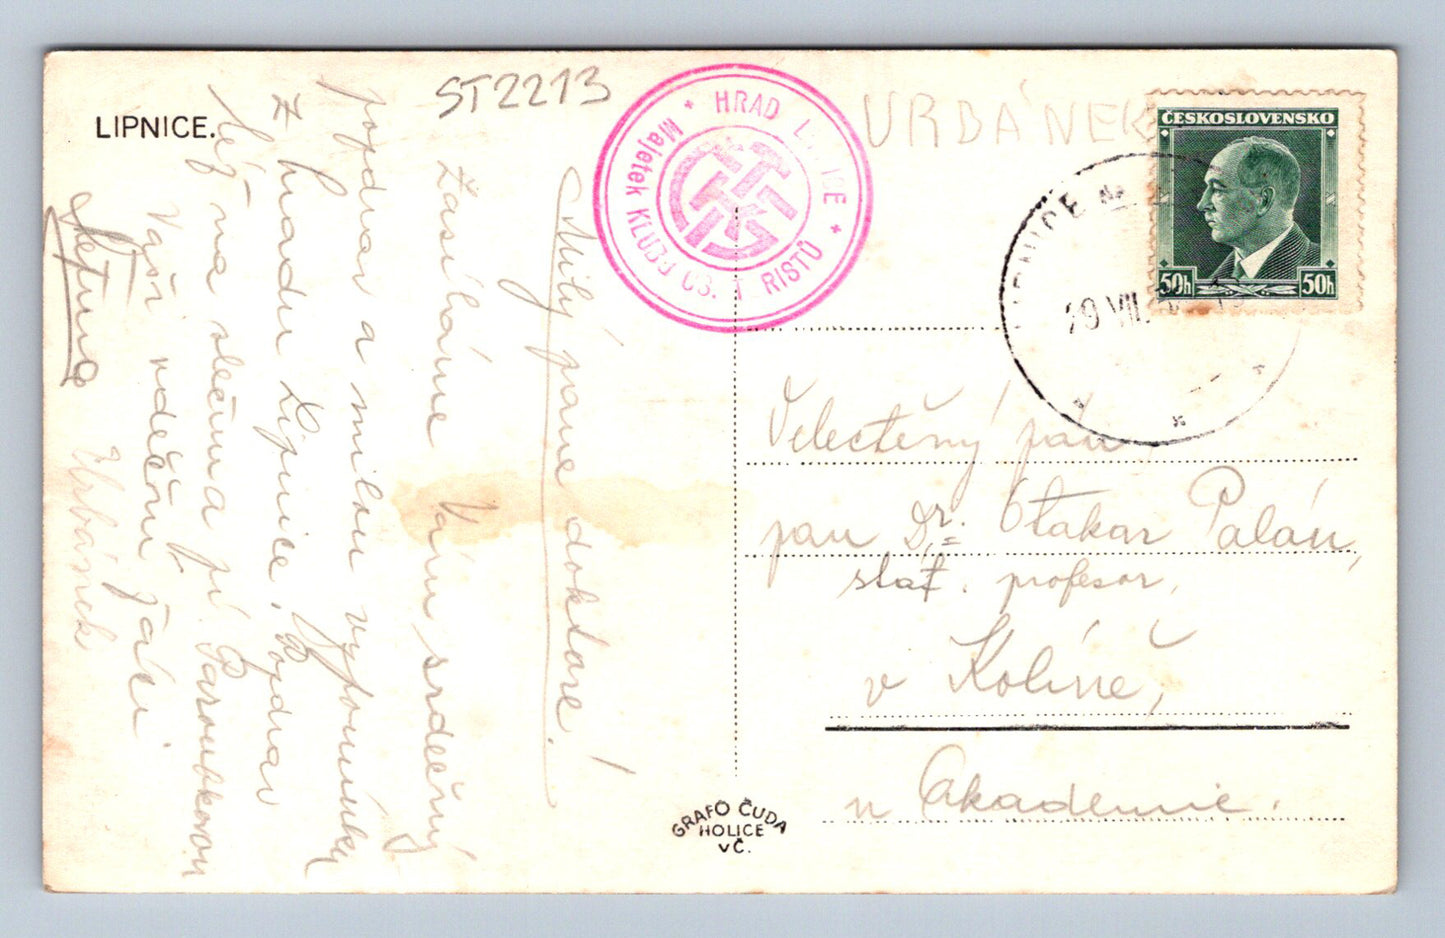 LIPNICE.
ST2213
HRAD
Majetek KLUBU
URBÁNEK
ČESKOSLOVENSKO
50h 50h
29 VII.
Milý pane doktore!
Zasíláme Vám srdečný
pozdrav a milou vzpomínku
z hradu Lipnice. Pozdrav
též na slečnu pí Paroubkovou
Vaši vděční žáci
Urbánek
Velectěný pán
pan Dr. Otakar Palán,
stát. profesor,
v Kolíně,
u Akademie.
GRAFO ČUDA
HOLICE
VČ.